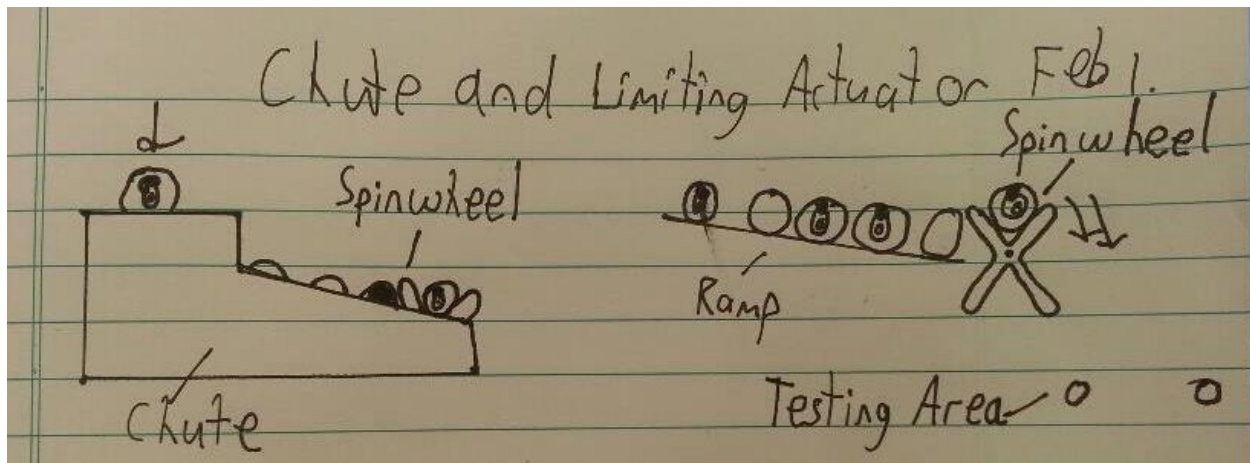 Chute and Limiting Actuator Feb 1.
Spinwheel
Spinwheel
Ramp
Chute
Testing Area